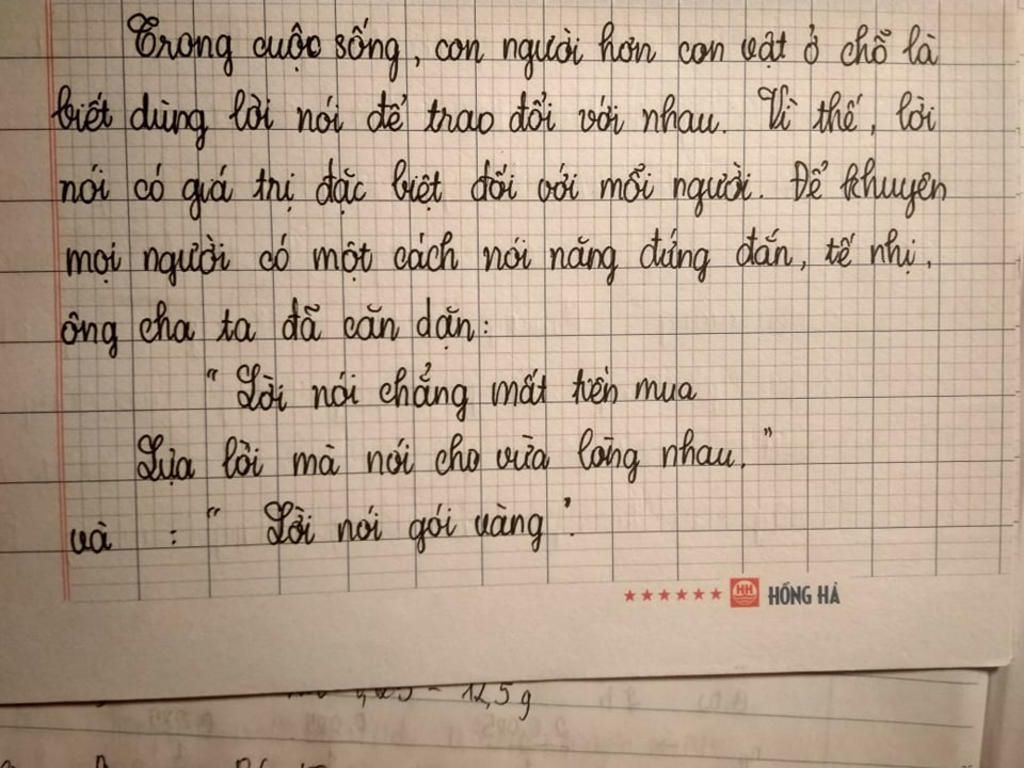 Trong cuộc sống, con người hơn con vật ở chỗ là
biết dùng lời nói để trao đổi với nhau. Vì thế, lời
nói có giá trị đặc biệt đối với mỗi người. Để khuyên
mọi người có một cách nói năng đúng đắn, tế nhị,
ông cha ta đã căn dặn:
"Lời nói chẳng mất tiền mua
Lựa lời mà nói cho vừa lòng nhau."
và : "Lời nói gói vàng".
★★★★★★ HH HỒNG HÀ
12,5g